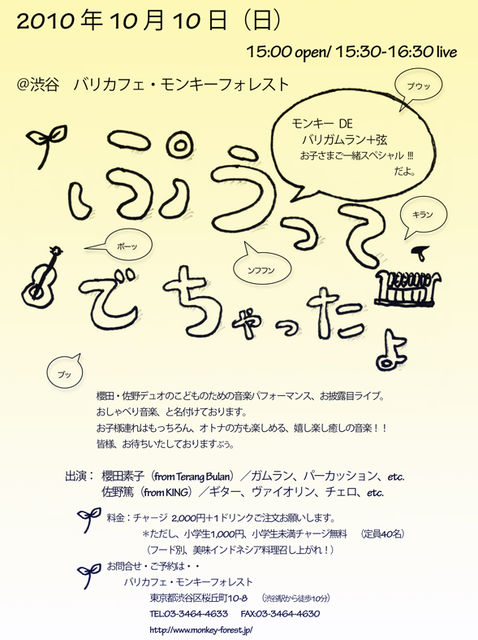 2010年10月10日（日）
15:00 open/ 15:30-16:30 live
@渋谷　バリカフェ・モンキーフォレスト
プウッ
モンキー DE
バリガムラン＋弦
お子さまご一緒スペシャル !!!
だよ。
ぷうって
キラン
ボーッ
ンフフン
でちゃったよ
プッ
櫻田・佐野デュオのこどものための音楽パフォーマンス、お披露目ライブ。
おしゃべり音楽、と名付けております。
お子様連れはもっちろん、オトナの方も楽しめる、嬉し楽し癒しの音楽！！
皆様、お待ちいたしておりますぷぅ。
出演： 櫻田素子（from Terang Bulan）／ガムラン、パーカッション、etc.
佐野篤（from KING）／ギター、ヴァイオリン、チェロ、etc.
料金：チャージ 2,000円＋1ドリンクご注文お願いします。
＊ただし、小学生1,000円、小学生未満チャージ無料　（定員40名）
（フード別、美味インドネシア料理召し上がれ！）
お問合せ・ご予約は・・
バリカフェ・モンキーフォレスト
東京都渋谷区桜丘町10-8　（渋谷駅から徒歩10分）
TEL:03-3464-4633　FAX:03-3464-4630
http://www.monkey-forest.jp/